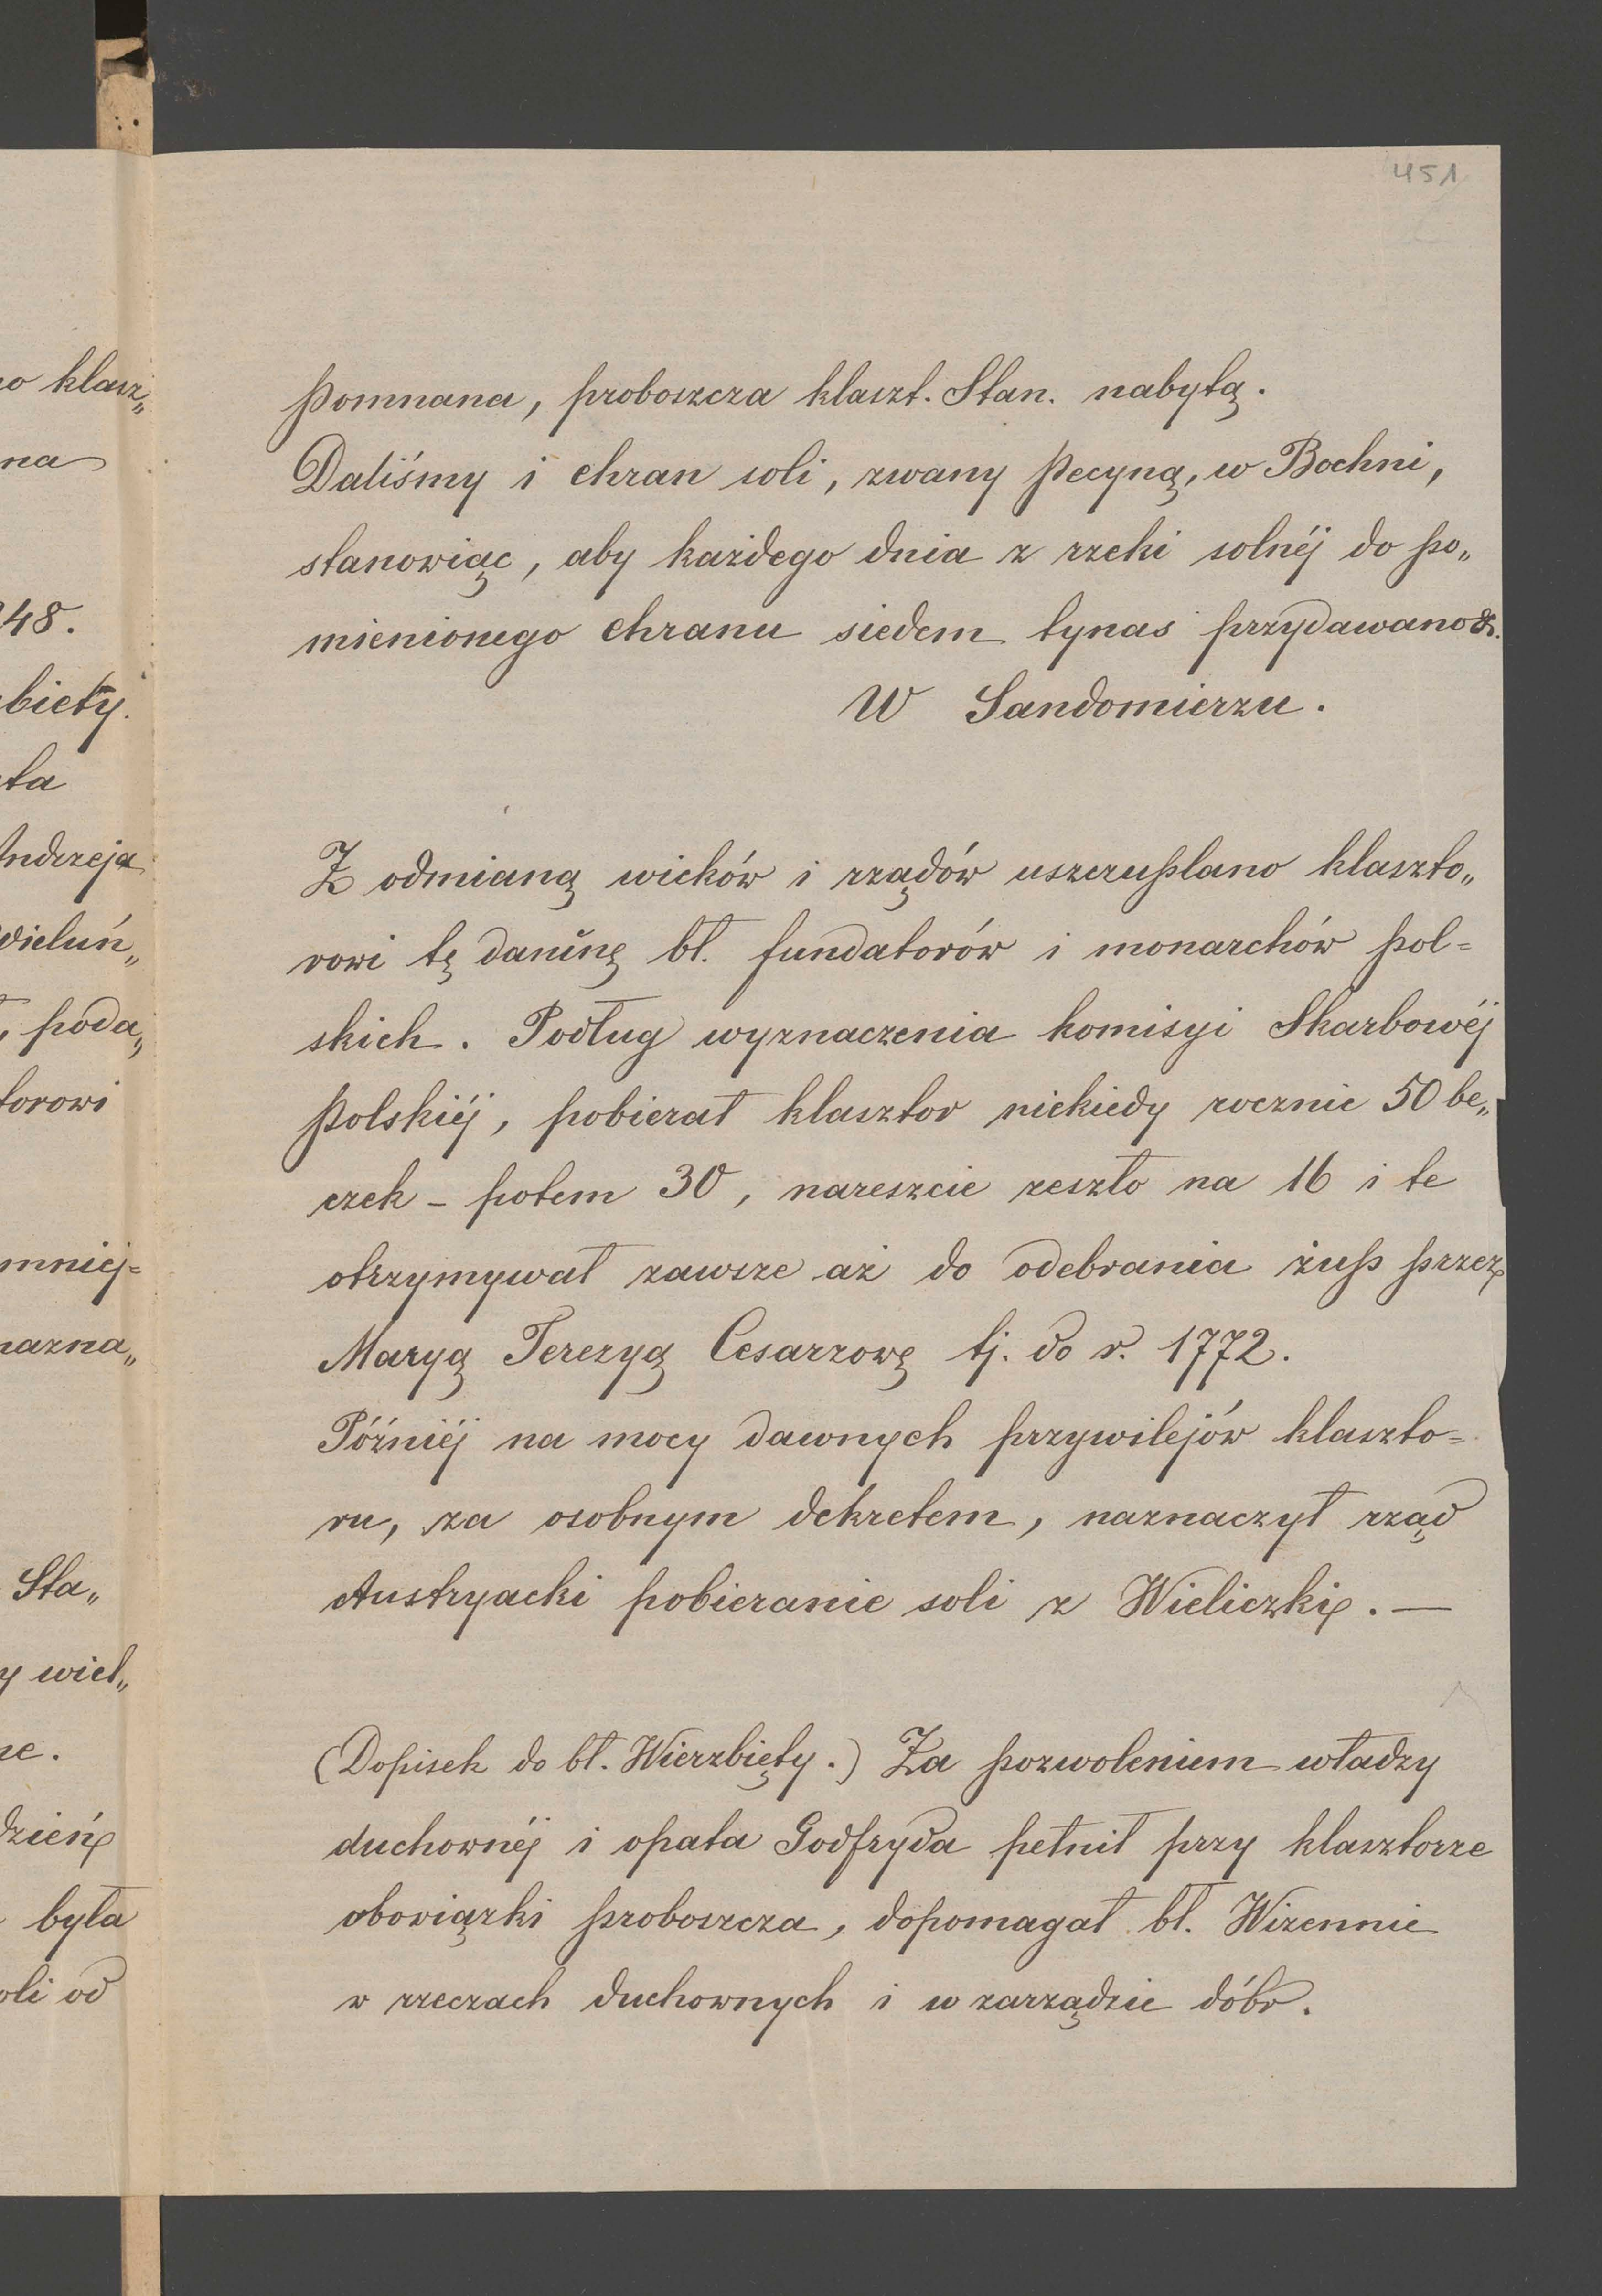 451
Pomnana, proboszcza klaszt. Stan. nabytą.
Daliśmy i chran soli, zwany Pecyną, w Bochni,
stanowiąc, aby każdego dnia z rzeki solnéj do po„
mienionego chranu siedem tynas przydawano &.
W Sandomierzu.
Z odmianą wieków i rządów uszczuplano klaszto„
rowi tę daninę bł. fundatorów i monarchów pol=
skich. Podług wyznaczenia komisyi Skarbowéj
Polskiéj, pobierał klasztor niekiedy rocznie 50 be„
czek – potem 30, nareszcie zeszło na 16 i te
otrzymywał zawsze aż do odebrania żup przez
Maryą Terezyą Cesarzowę tj. do r. 1772.
Późniéj na mocy dawnych przywilejów klaszto=
ru, za osobnym dekretem, naznaczył rząd
Austryacki pobieranie soli z Wieliczki. —
(Dopisek do bł. Wierzbięty.) Za pozwoleniem władzy
duchownéj i opata Godfryda pełnił przy klasztorze
obowiązki proboszcza, dopomagał bł. Wizennie
w rzeczach duchownych i w zarządzie dóbr.
o klasz„
na
48.
biety.
ta
Andrzeja
Wieluń„
, poda„
torowi
mniej=
nazna„
Sta„
y wiel„
ne.
dzień
była
oli od